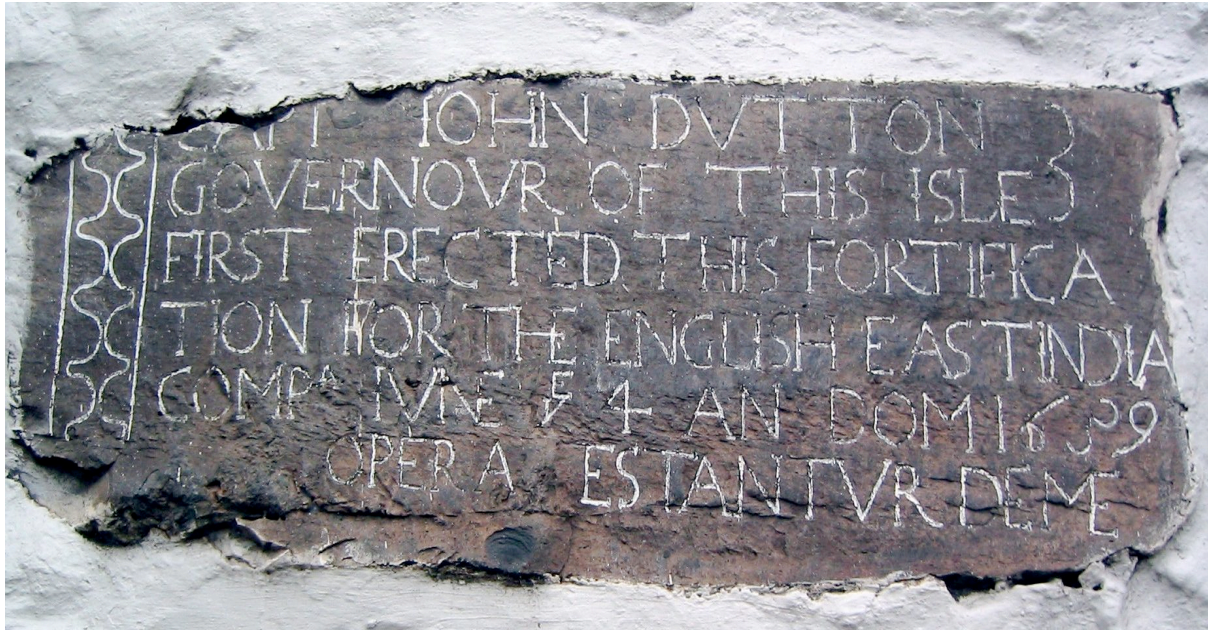 CAPT IOHN DVTTON
GOVERNOVR OF THIS ISLE
FIRST ERECTED THIS FORTIFICA
TION FOR THE ENGLISH EAST INDIA
COMPA IVNE Yᴱ 4 AN DOM 1659
OPERA TESTANTVR DE ME